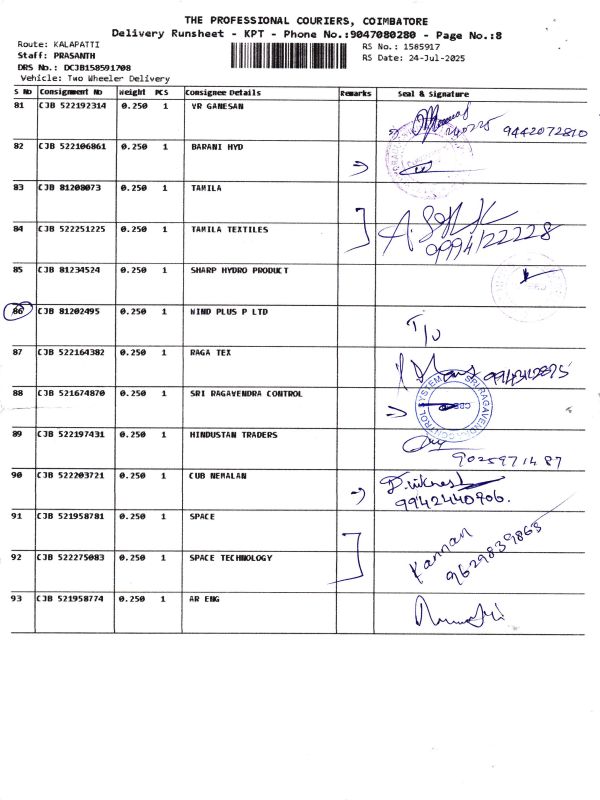 THE PROFESSIONAL COURIERS, COIMBATORE
Delivery Runsheet - KPT - Phone No.:9047080280 - Page No.:8
Route: KALAPATTI
RS No.: 1585917
Staff: PRASANTH
RS Date: 24-Jul-2025
DRS No.: DCJB158591708
Vehicle: Two Wheeler Delivery
S No Consignment No Weight PCS Consignee Details Remarks Seal & Signature
81 CJB 522192314 0.250 1 VR GANESAN 9442072810
82 CJB 522106861 0.250 1 BARANI HYD
83 CJB 81208073 0.250 1 TAMILA
84 CJB 522251225 0.250 1 TAMILA TEXTILES 09994122228
85 CJB 81234524 0.250 1 SHARP HYDRO PRODUCT
86 CJB 81202495 0.250 1 WIND PLUS P LTD
87 CJB 522164382 0.250 1 RAGA TEX
88 CJB 521674870 0.250 1 SRI RAGAVENDRA CONTROL
89 CJB 522197431 0.250 1 HINDUSTAN TRADERS 9025971487
90 CJB 522203721 0.250 1 CUB NEMALAN 9942440906.
91 CJB 521958781 0.250 1 SPACE
92 CJB 522275083 0.250 1 SPACE TECHNOLOGY Kannan 9629839863
93 CJB 521958774 0.250 1 AR ENG